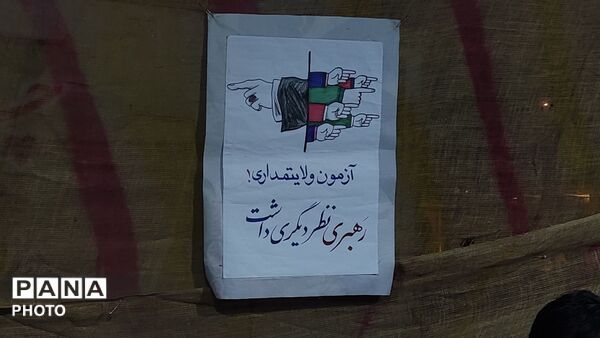 آزمون ولایتمداری!
رَهبری نظر دیگری داشت
PANA
PHOTO